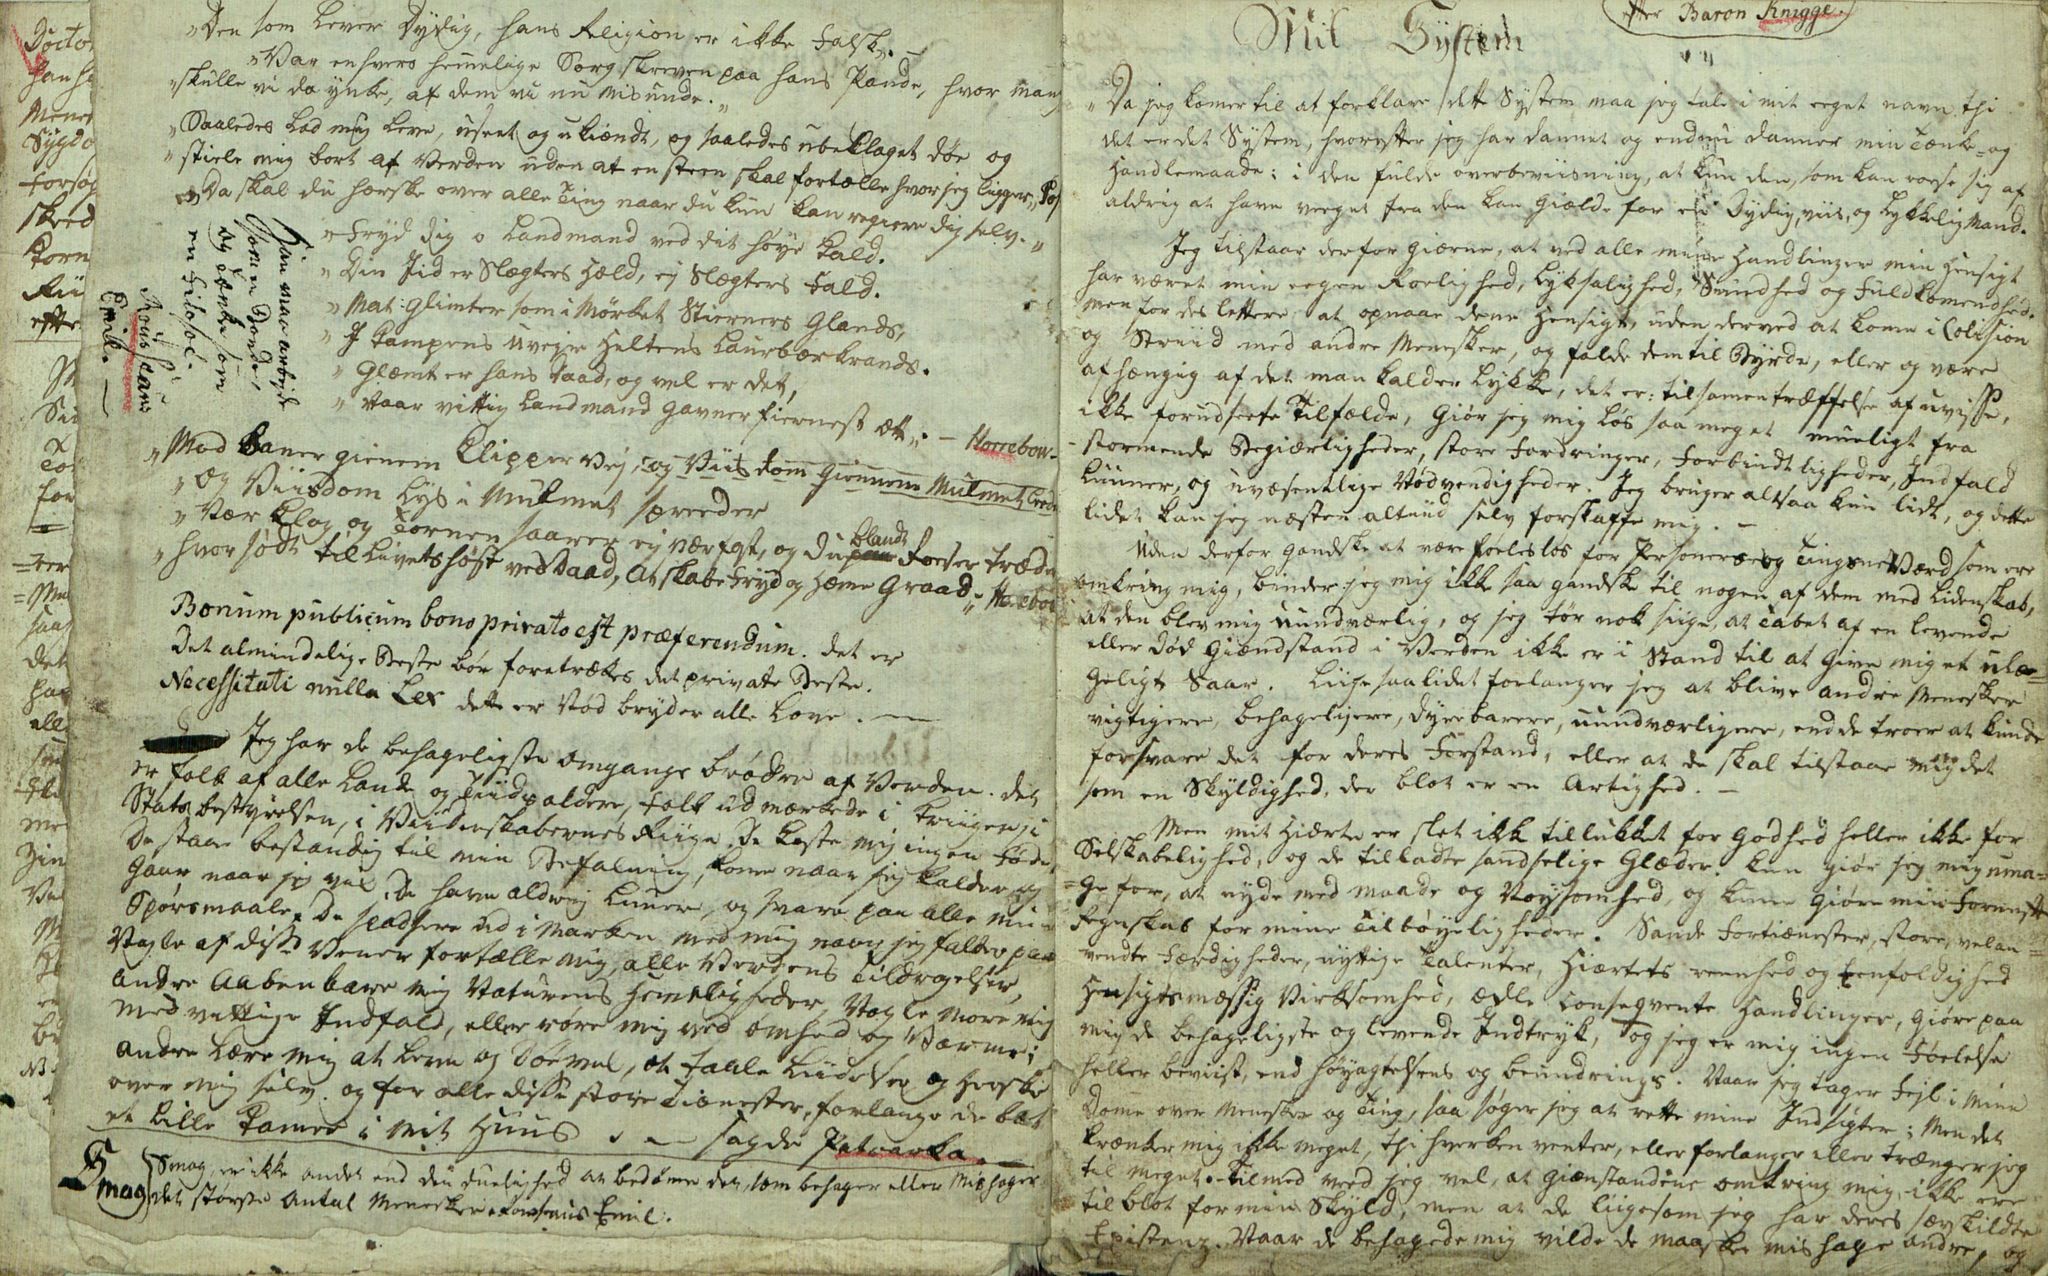 „Den som lever Dydig, hans Religion er ikke falsk„. –
„Var enhvers hemmelige Sorg skreven paa hans Pande, hvor mang
„skulle vi da ynke, af dem vi nu misunde.„
„Saaledes lad mig leve, useet og ukiendt, og saaledes ubeklaget døe og
„stiele mig bort af Verden uden at en steen skal fortælle hvor jeg ligger„
„Da skal du herske over alle Ting naar du kun kan regiere dig selv.„
„Fryd dig o Landmand ved dit høye Kald.
„Din Iid er Slægters Held, ey Slægters Fald.
„Mat glimter som i Mørket Stierners Glands,
„I Kampens Uvejr Heltens Laurbærkrands.
„Glemt er hans Daad, og vel er det,
„Naar vittig Landmand gavner fierneste Æt„. – Horrebow.
Han maa arbejde
som en Bonde,
og tænke som
en Filosof.
Rousseaus
Emille –
„Mod baner gienem Klipper Vej, og Viisdom giennem Mulmet
„og Viisdom Lys i Mulmet spreeder
„Vær klog og Tornen saarer ey vær fast, og du blandt Roeser træder
„hvor sødt til Livets høst ved Daad, at skabe Fryd og hæmme Graad„
Bonum publicum bono privato est præferendum. det er
Det almindelige Beste bør foretrækkes det private Beste.
Necessitati nulla Lex dette er Nød bryder alle Love. –
Jeg har de behageligste Omgangs brødre af Verden. det
er folk af alle Lande og Tiidsaldere, folk udmærkede i Kriigen, i
Stats bestyrelsen, i Viidenskabernes Riige. De koste mig ingen Føde,
De staae bestandig til min Befalning, kome naar jeg kalder og
gaae naar jeg vil. De have aldrig Luner, og svare paa alle mine
Spørsmaale. De spadsere ud i Marken med mig naar jeg falder paa
Nogle af disse Vener fortælle mig, alle Verdens Tildragelser,
andre aabenbare mig Naturens Hemmeligheder, Nogle more mig
med vittige Indfald, eller røre mig ved ømhed og Varme;
andre lære mig at leve og døe vel, at taale Liidelser og herske
over mig selv. og for alle disse store Tienester, forlange de blot
et lille Kamer i mit Huus. – sagde Petrarka. –
Smag. Smag, er ikke andet end den duelighed at bedømme det, som behager eller mishager
det største Antal Mennesker. Rousseaus Emil.
Mit System
efter Baron Knigge.
„Da jeg komer til at forklare dette System maa jeg tale i mit eeget navn thi
det er det System, hvorefter jeg har dannet og endnu danner min Tænke- og
Handlemaade; i den fulde overbeviisning, at kun den, som kan roese sig af
aldrig at have veeget fra den kan giælde for en Dydig, viis, og lykkelig Mand.
Jeg tilstaar derfor giærne, at ved alle mine Handlinger min Hensigt
har været min eegen Roelighed, lyksalighed, Sundhed og Fuldkomenhed.
men for des lettere at opnaae dene Hensigt, uden derved at kome i Colision
og Striid med andre Menesker, og falde dem til Byrde, eller og være
afhængig af det man kalder Lykke, det er: tilsamentræffelse af uvisse,
ikke forudseete Tilfælde, giør jeg mig løs saa meget mueligt fra
stormende Begiærligheder, store Fordringer, Forbindtligheder, Indfald
Luuner, og uvæsentlige Nødvendigheder. Jeg bruger altsaa kun lidt, og dette
lidet kan jeg næsten altiid selv forskaffe mig. –
Uden derfor gandske at være føelesløs for Personers og Tingenes Værd som ere
omkring mig, binder jeg mig ikke saa gandske til nogen af dem med Lidenskab,
at den blev mig uundværlig, og jeg tør nok siige, at Tabet af en levende
eller død Giændstand i Verden ikke er i Stand til at give mig et ulæ-
geligt Saar. Liige saa lidet forlanger jeg at blive andre Menesker
vigtigere, behageligere, dyrebarere, uundværligere, end de troer at kunde
forsvare det for deres Forstand, eller at de skal tilstaae mig det
som en Skyldighed, der blot er en Artighed. –
Men mit Hiærte er slet ikke tillukket for Godhed heller ikke for
Selskabelighed, og de tilladte sandselige Glæder. kun giør jeg mig uma-
ge for, at nyde med maade og Nøysomhed, og kunne giøre min Fornuft
Regnskab for mine Tilbøyeligheder. Sande Fortiænester, store, velan-
vendte Færdigheder, nyttige Talenter, Hiærtets reenhed og Eenfoldighed
Hensigtsmæssig Virksomhed, ædle consequente Handlinger, giøre paa
mig de behageligste og levende Indtryk, og jeg er mig ingen Føelelse
heller beviist, end høyagtelsens og beundrings. Naar jeg tager Fejl i mine
Dome over Mennesker og Ting, saa søger jeg at rette mine Indsigter; Men det
krænker mig ikke meget, thi hverken venter, eller forlanger eller trænger jeg
til meget. Tilmed veed jeg vel, at Giænstandene omkring mig, ikke ere
til blot for min Skyld, men at de liigesom jeg har deres særskildte
Existenz. Naar de behagede mig vilde de maaskee mishage andre, og